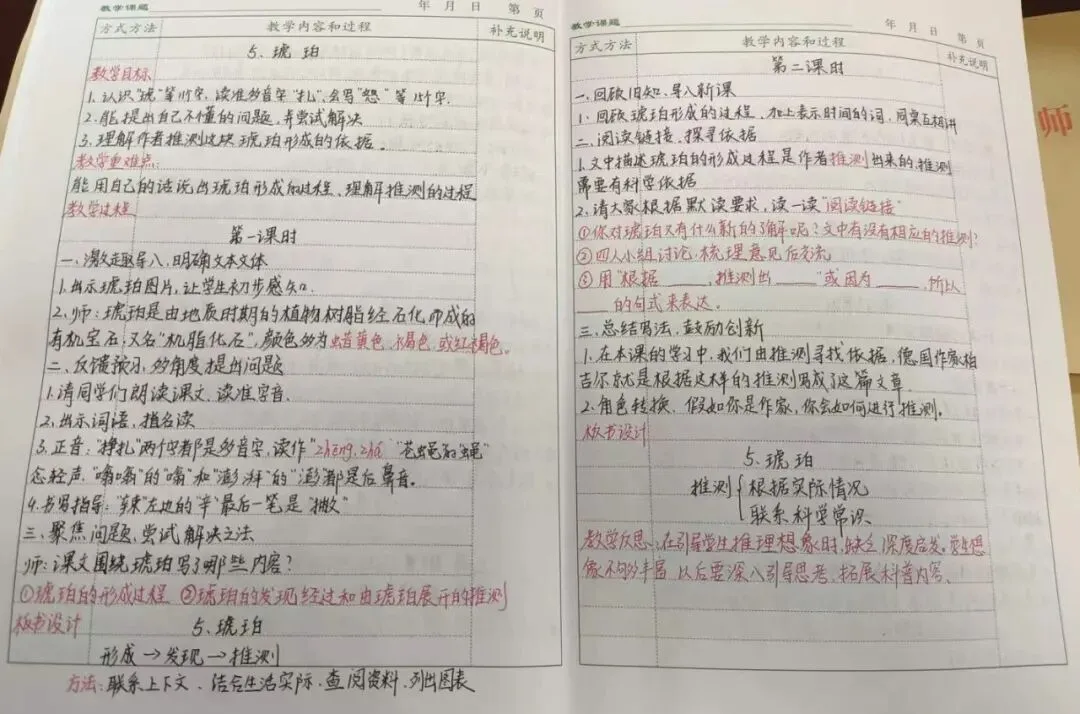 教学课题 年 月 日 第 页
方式方法 教学内容和过程 补充说明
5. 琥珀
教学目标
1. 认识"琥"等11个字，读准多音字"扎"，会写"怒"等15个字.
2. 能提出自己不懂的问题，并尝试解决
3. 理解作者推测这块琥珀形成的依据。
教学重难点：
能用自己的话说出琥珀形成的过程、理解推测的过程
教学过程
第一课时
一、激趣导入，明确文本文体
1. 出示琥珀图片，让学生初步感知.
2. 师：琥珀是由地质时期的植物树脂经石化而成的
有机宝石，又名"树脂化石"，颜色多为蜡黄色、褐色、或红褐色。
二、反馈预习，多角度提出问题
1. 请同学们朗读课文、读准字音.
2. 出示词语，指名读
3. 正音："挣扎"两个字都是多音字，读作"zhēng.zhá" "苍蝇的"蝇"
念轻声."嗡嗡"的"嗡"和"澎湃"的"澎都是后鼻音。
4. 书写指导："辣"左边的"辛"最后一笔是"撇"
三、聚焦问题，尝试解决之法
师：课文围绕琥珀写了哪些内容？
①琥珀的形成过程 ②琥珀的发现经过和由琥珀展开的推测
板书设计 5. 琥珀
形成→发现→推测
方法：联系上下文、结合生活实际、查阅资料、列出图表
教学课题 年 月 日 第 页
方式方法 教学内容和过程 补充说明
第二课时
一、回顾旧知、导入新课
1. 回顾琥珀形成的过程、加上表示时间的词，同桌互相讲
二、阅读链接、探寻依据
1. 文中描述琥珀的形成过程是作者推测出来的，推测
需要有科学依据
2. 请大家根据默读要求，读一读"阅读链接"
①你对琥珀又有什么新的了解呢？文中有没有相应的推测？
②四人小组讨论，梳理意见后交流
③用"根据____，推测出____"或因为____，所以
____的句式来表达。
三、总结写法，鼓励创新
1. 在本课的学习中，我们由推测寻找依据，德国作家柏
吉尔就是根据这样的推测写成了这篇文章.
2. 角色转换、假如你是作家，你会如何进行推测。
板书设计
5. 琥珀
推测{根据实际情况
联系科学常识
教学反思：在引导学生推理想象时，缺乏深度启发。学生想
象不够丰富，以后要深入引导思考、拓展科普内容、
师